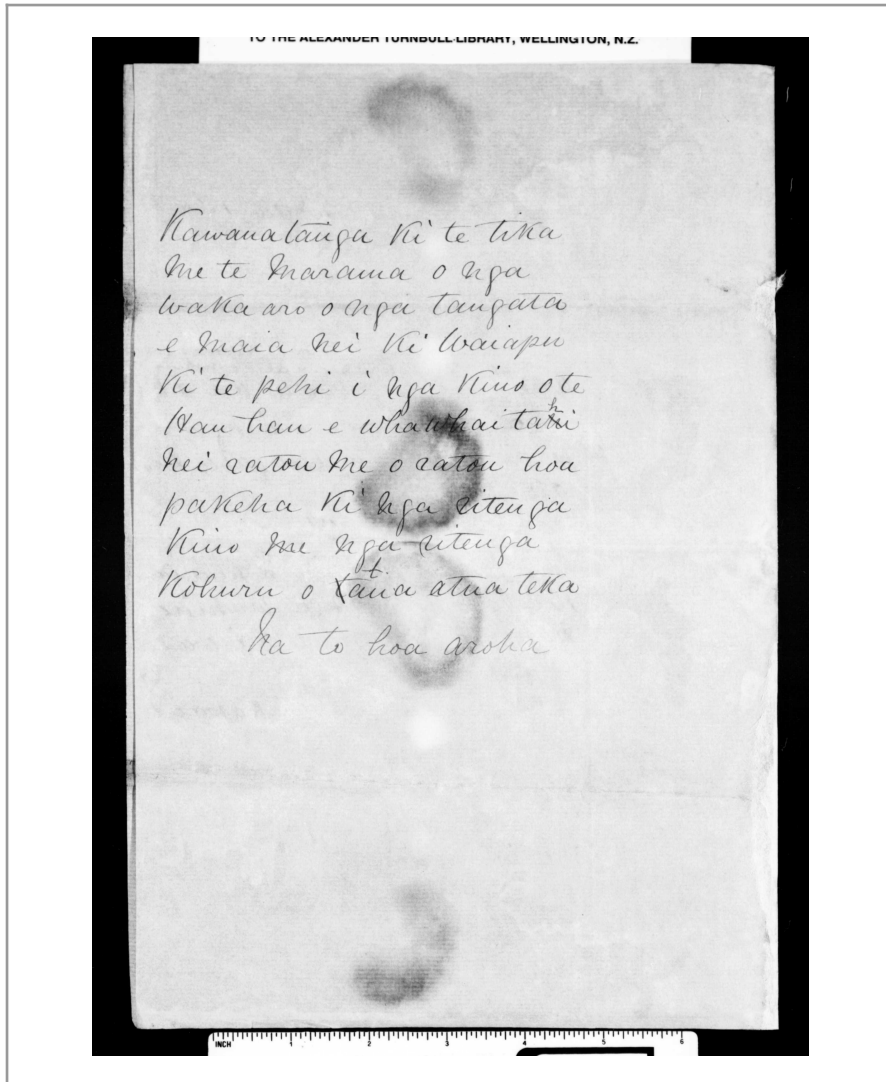 TO THE ALEXANDER TURNBULL LIBRARY, WELLINGTON, N.Z.
Kawanatanga ki te tika
me te marama o nga
waka aro o nga tangata
e maia nei ki Waiapu
ki te pehi i nga kino o te
Hau hau e whawhai tahi
nei ratou me o ratou hoa
pakeha ki nga ritenga
kino me nga ritenga
kohuru o taua atua teka
Na to hoa aroha
INCH 1 2 3 4 5 6